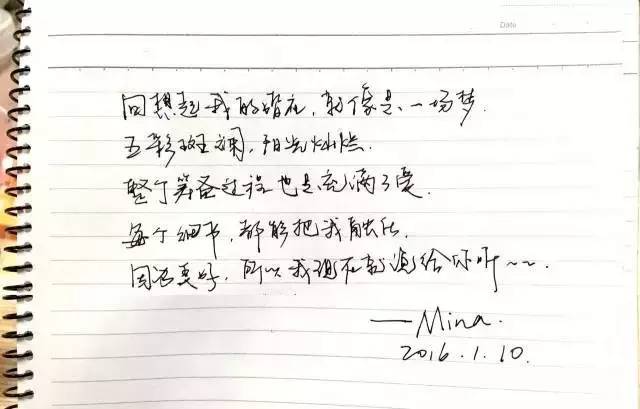 Date
回想起我的婚礼，就像是一场梦.
五彩斑斓，阳光灿烂.
整个筹备过程也是充满了爱.
每个细节，都能把我融化.
因为美好，所以我现在就说给你听~~.
—Mina.
2016.1.10.